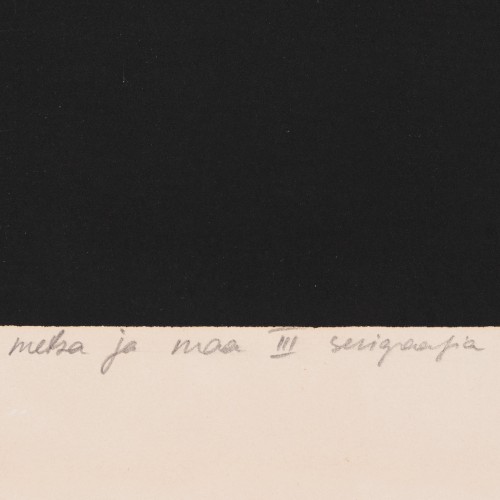 metsa ja maa III serigraafia